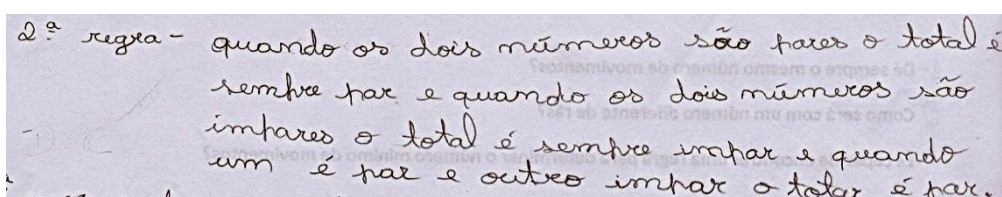 2ª regra - quando os dois números são pares o total é
sempre par e quando os dois números são
impares o total é sempre impar e quando
um é par e outro impar o total é par.